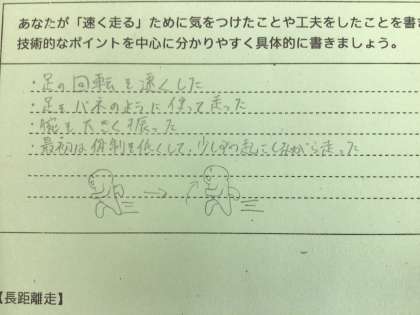 あなたが「速く走る」ために気をつけたことや工夫をしたことを書き
技術的なポイントを中心に分かりやすく具体的に書きましょう。
・足の回転を速くした
・足をバネのように使って走った
・腕を大きく振った
・最初は体制を低くして、少しずつ起こしながら走った
【長距離走】